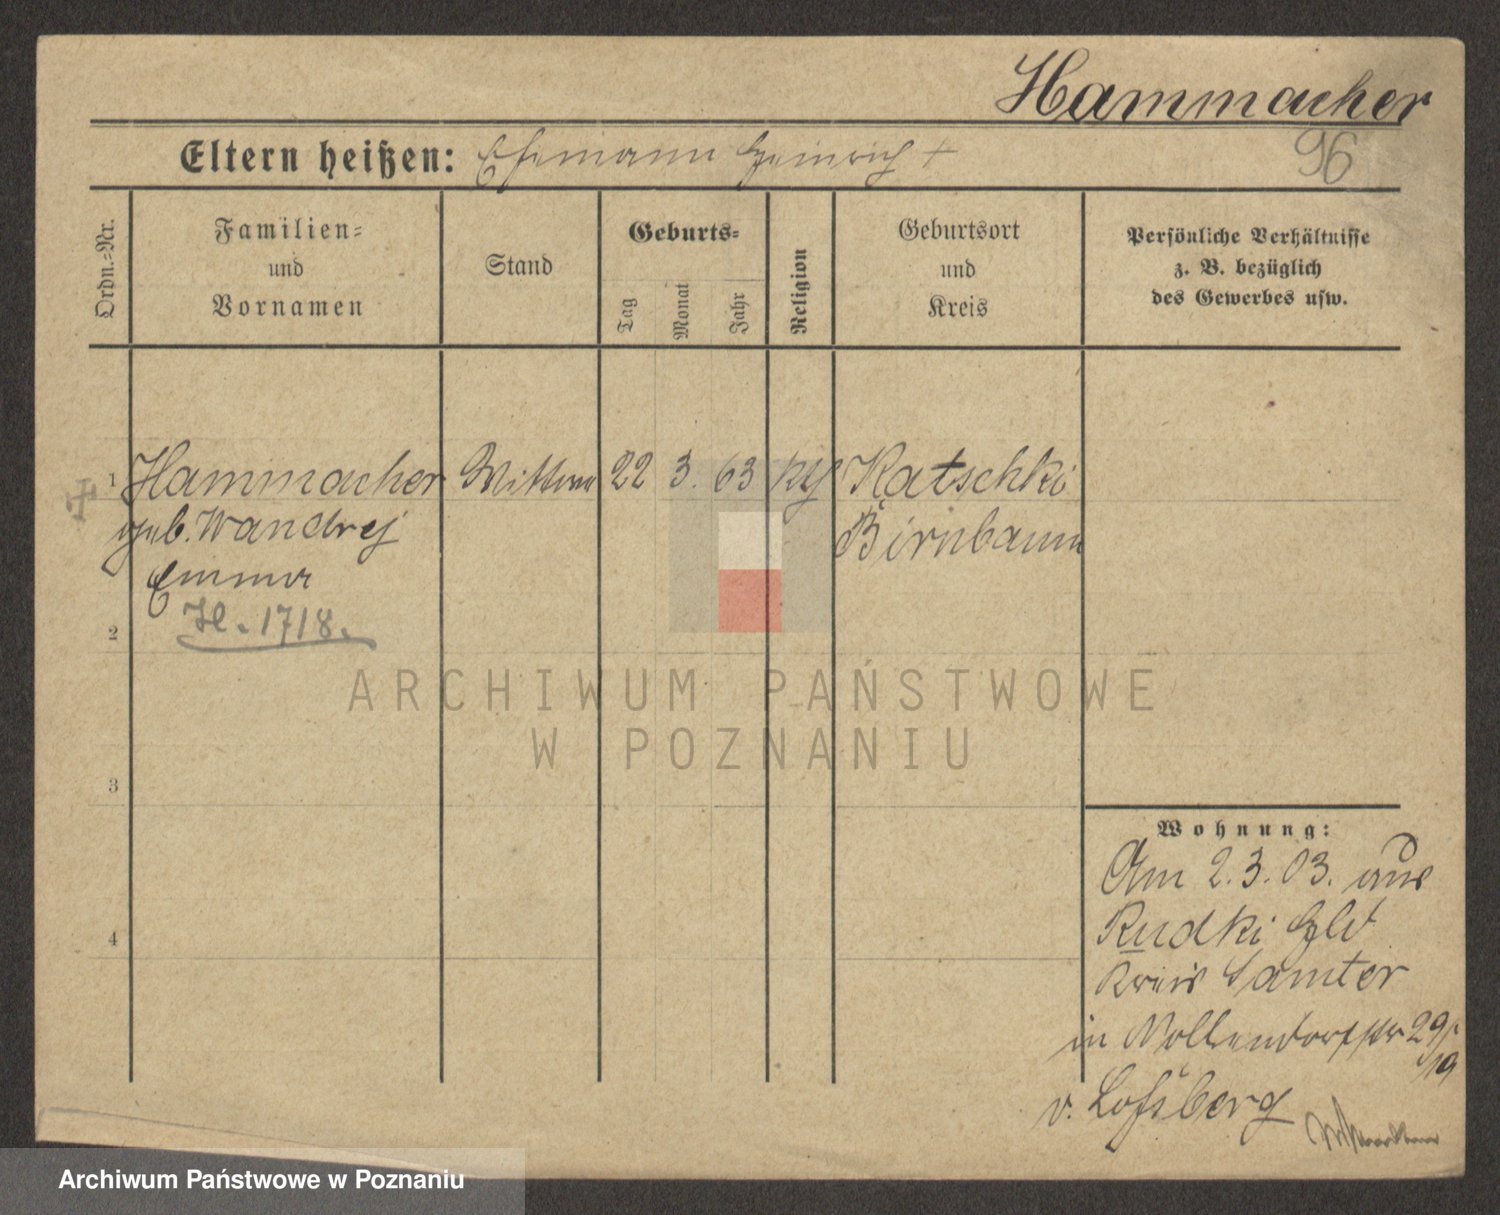 Hammacher
96
Eltern heißen: Ehemann Heinrich +
Ordn.-Nr.
Familien-
und
Vornamen
Stand
Geburts-
Tag
Monat
Jahr
Religion
Geburtsort
und
Kreis
Persönliche Verhältnisse
z. B. bezüglich
des Gewerbes usw.
1 Hammacher Wittwe 22 3. 63 Katschki
geb. Wandrej Birnbaum
Emma
Hl. 1718.
2
3
4
Wohnung:
Am 2.3.03. aus
Rudki
Kreis Samter
in 29/
19
v.
ARCHIWUM PAŃSTWOWE
W POZNANIU
Archiwum Państwowe w Poznaniu